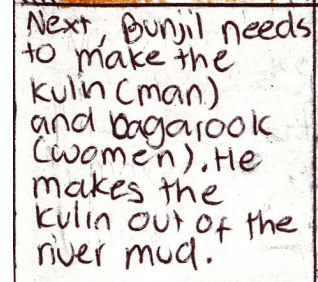 Next, Bunjil needs
to make the
kulin (man)
and bagarook
(women). He
makes the
kulin out of the
river mud.